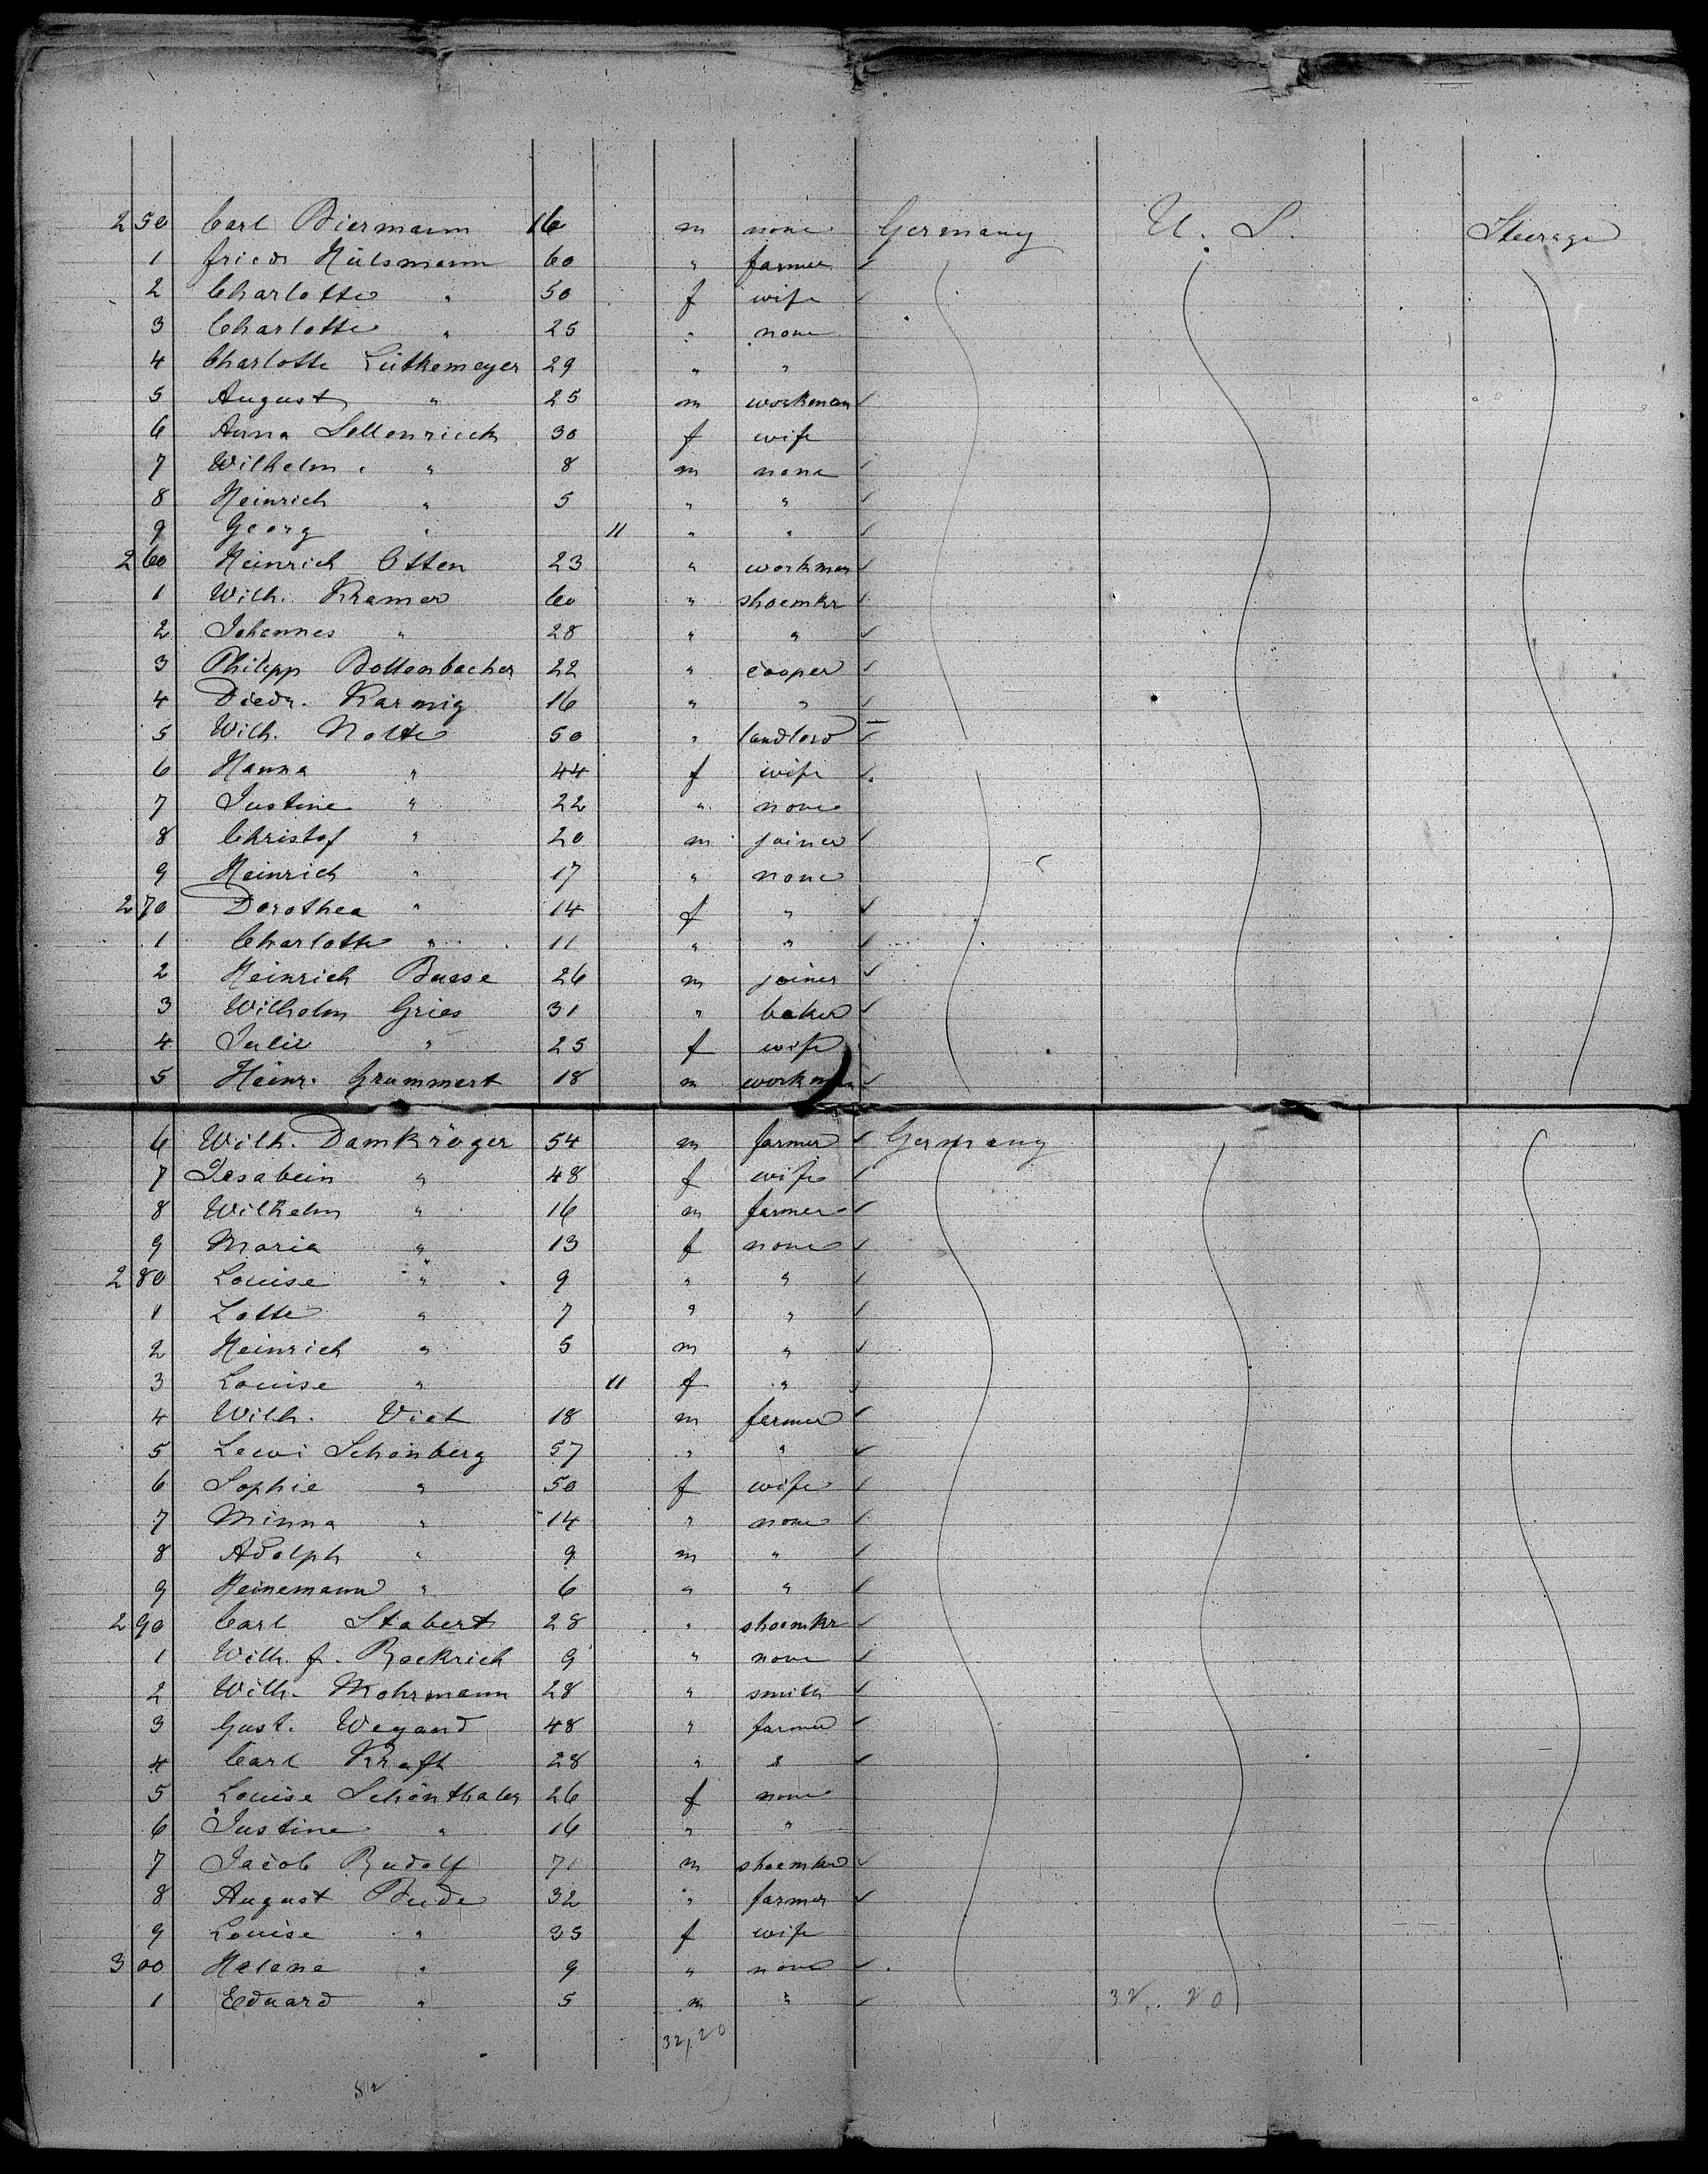 250 Carl Biermann 16 m none Germany U. S. Steerage
1 Friedr Hülsmann 60 " farmer
2 Charlotte " 50 f wife
3 Charlotte " 25 " none
4 Charlotte Lütkemeyer 29 " "
5 August " 25 m workman
6 Anna Sellenrieck 30 f wife
7 Wilhelm " 8 m none
8 Heinrich " 5 " "
9 Georg " 11 " "
260 Heinrich Otten 23 " workman
1 Wilh. Kramer 60 " shoemkr
2 Johannes " 28 " "
3 Philipp Bottenbacher 22 " cooper
4 Diedr. Karnig 16 " "
5 Wilh. Nolte 50 " landlord
6 Hanna " 44 f wife
7 Justine " 22 " none
8 Christof " 20 m joiner
9 Heinrich " 17 " none
270 Dorothea " 14 f "
1 Charlotte " 11 " "
2 Heinrich Busse 26 m joiner
3 Wilhelm Gries 31 " baker
4 Julie " 25 f wife
5 Heinr. Grummert 18 m workman
6 Wilh. Damkröger 54 m farmer Germany
7 Ilsabein " 48 f wife
8 Wilhelm " 16 m farmer
9 Maria " 13 f none
280 Louise " 9 " "
1 Lotte " 7 " "
2 Heinrich " 5 m "
3 Louise " 11 f "
4 Wilh. Viet 18 m farmer
5 Lewi Schönberg 57 " "
6 Sophie " 50 f wife
7 Minna " 14 " none
8 Adolph " 9 m "
9 Heinemann " 6 " "
290 Carl Stabert 28 " shoemkr
1 Wilh. F. Rockrich 9 " none
2 Wilh. Mohrmann 28 " smith
3 Gust. Wegand 48 " farmer
4 Carl Kraft 28 " "
5 Louise Schönthaler 26 f none
6 Justine " 16 " "
7 Jacob Rudolf 71 m shoemkr
8 August Bude 32 " farmer
9 Louise " 35 f wife
300 Helene " 9 " none
1 Eduard " 5 m " 32. 20
32,20
52